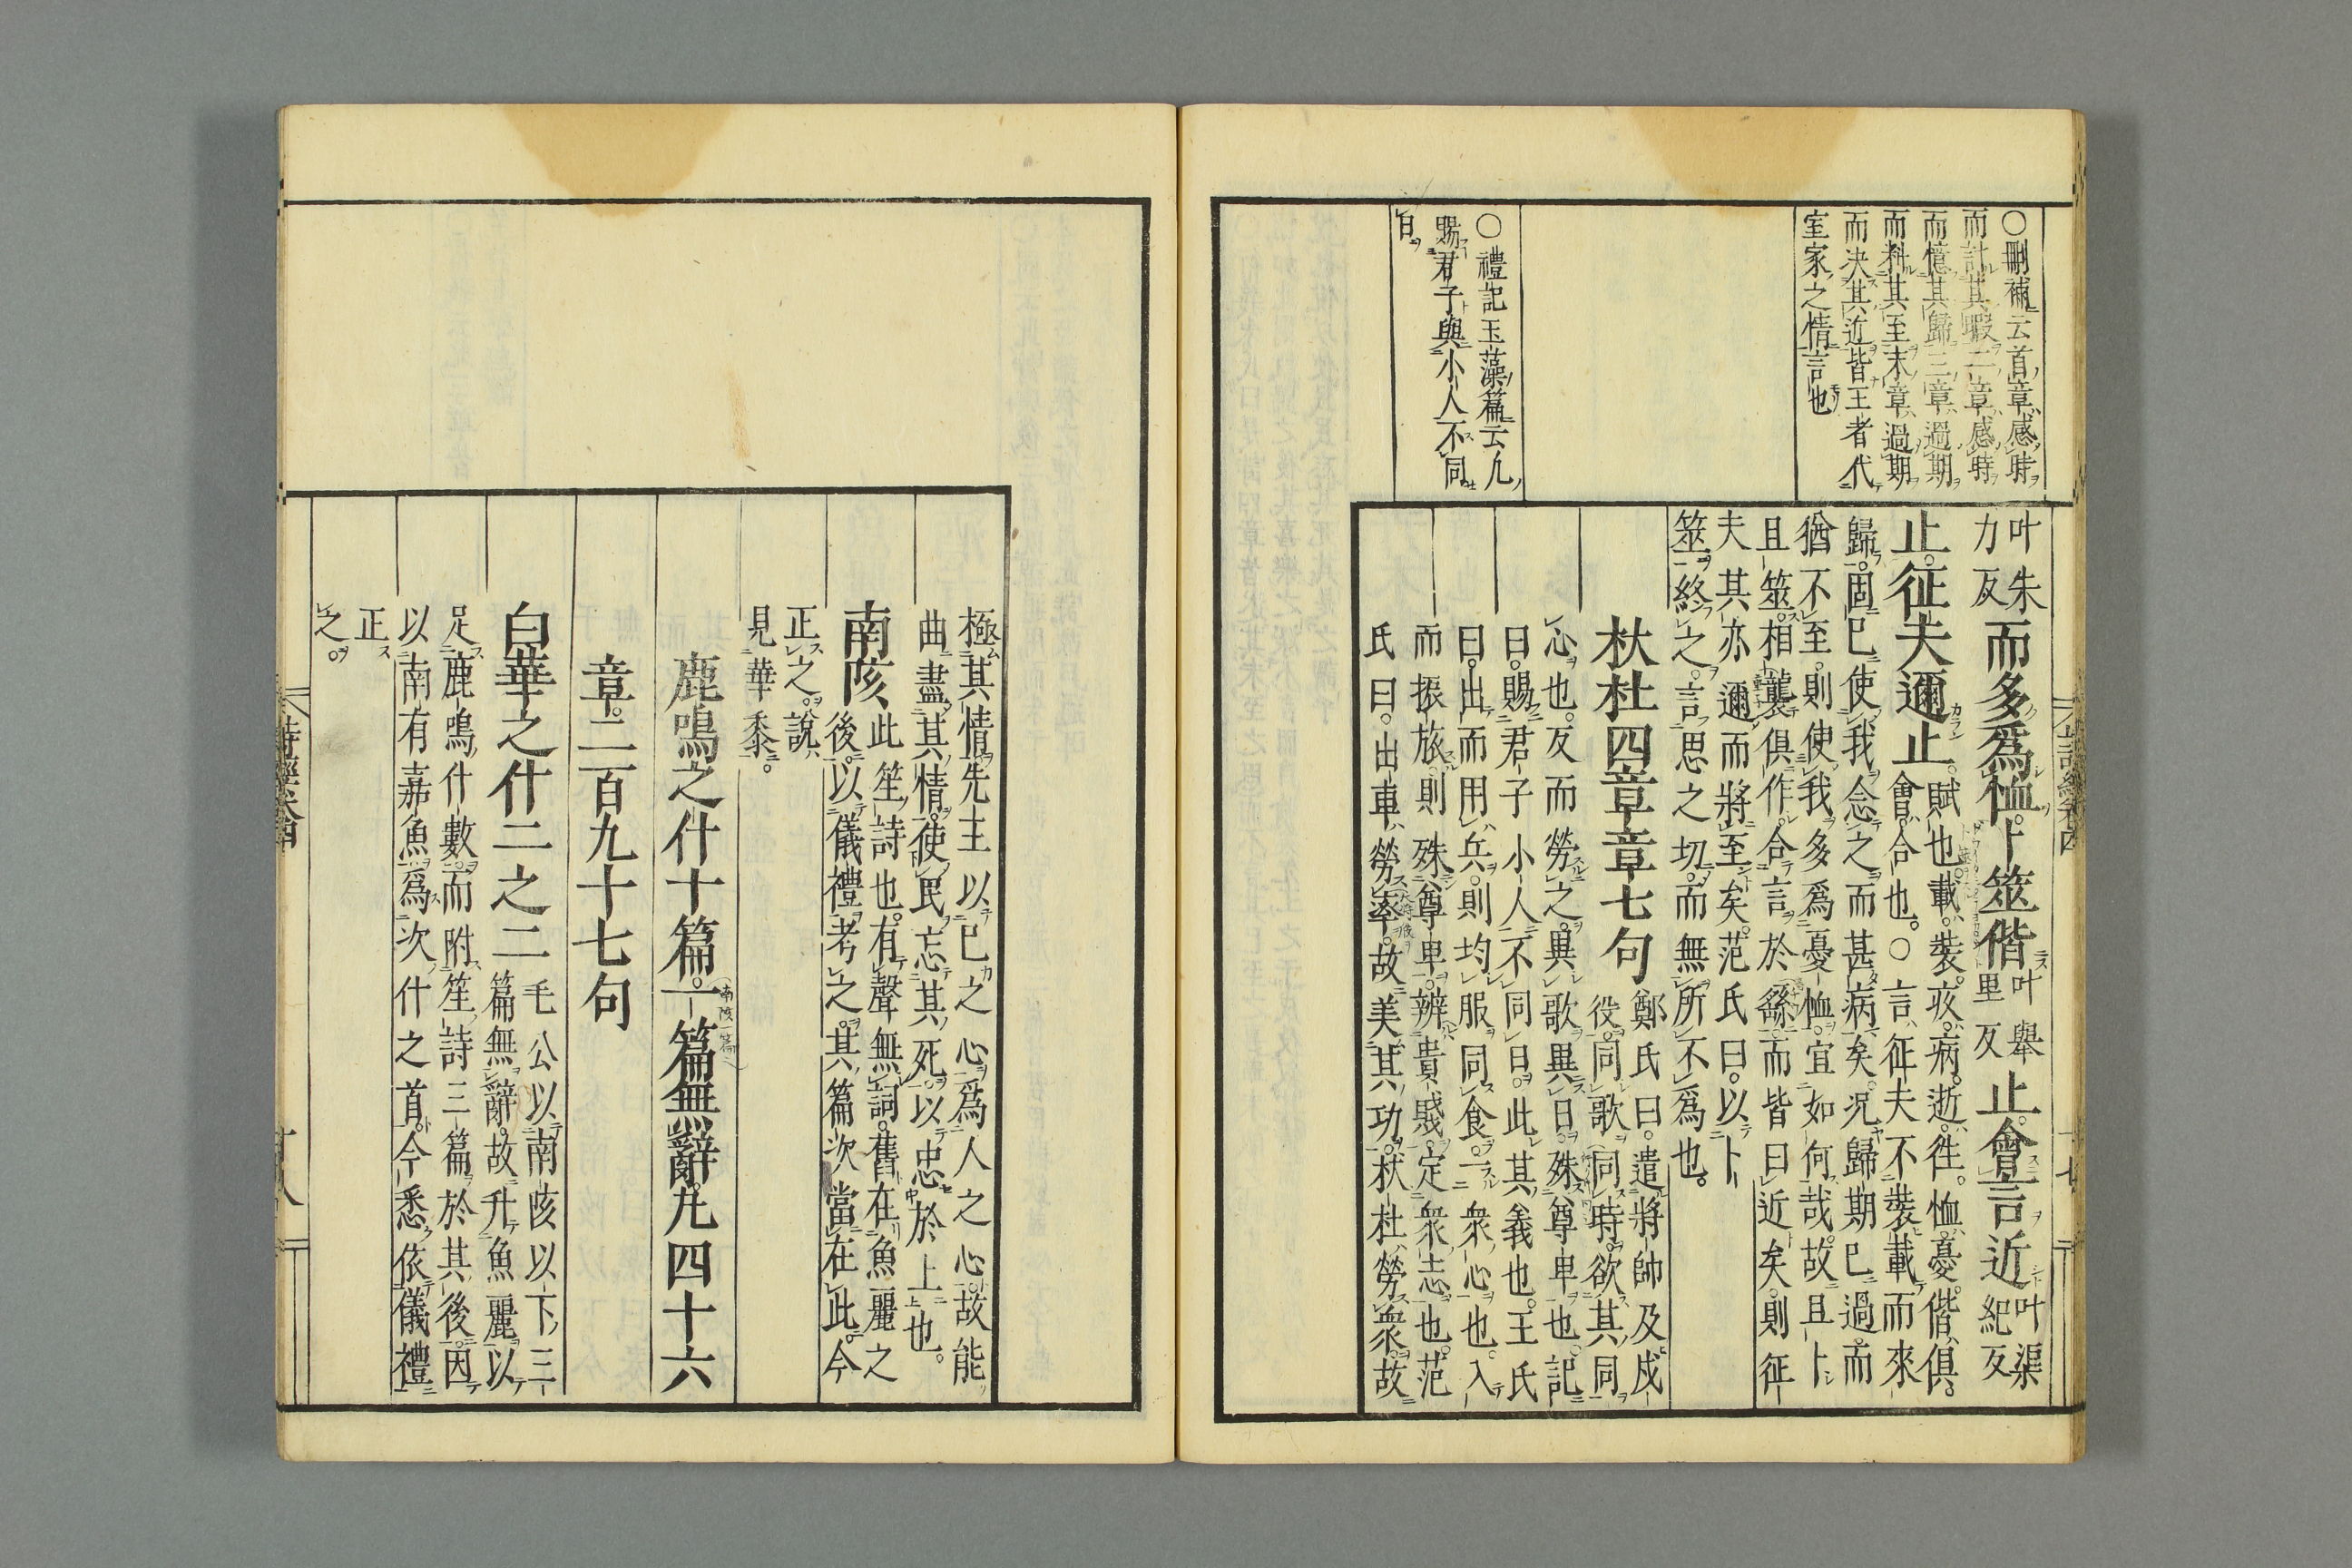 ○刪補云首章感時
而計其暇二章感時
而憶其歸三章過期
而料其至末章過期
而決其近皆王者代
室家之情言也
○禮記玉藻篇云凡
賜君子與小人不同
日
叶朱
力反
而多爲恤。卜筮偕
叶舉
里反
止。會言近
叶渠
紀反
止。征夫邇止。
賦也。載裝。疚病。逝往。恤憂。偕俱。
會合也。○言征夫不裝載而來
歸。固已使我念之而甚病矣。况歸期已過而
猶不至。則使我多爲憂恤。宜如何哉。故且卜
且筮。相襲俱作。合言於繇。而皆曰近矣。則征
夫其亦邇而將至矣。范氏曰。以卜
筮終之。言思之切。而無所不爲也。
杕杜四章章七句
鄭氏曰。遣將帥及戍
役。同歌同時。欲其同
心也。反而勞之。異歌異日。殊尊卑也。記
曰。賜君子小人不同日。此其義也。王氏
曰。出而用兵。則均服同食。一衆心也。入
而振旅。則殊尊卑。辨貴賤。定衆志也。范
氏曰。出車勞率。故美其功。杕杜勞衆。故
極其情。先王以己之心爲人之心。故能
曲盡其情。使民忘其死。以忠於上也。
南陔
此笙詩也。有聲無詞。舊在魚麗之
後。以儀禮考之。其篇次當在此。今
正之。說
見華黍。
鹿鳴之什十篇。一篇無辭。凡四十六
章。二百九十七句
白華之什二之二
毛公以南陔以下三
篇無辭。故升魚麗以
足鹿鳴什數。而附笙詩三篇於其後。因
以南有嘉魚爲次什之首。今悉依儀禮
正
之。
詩經卷四